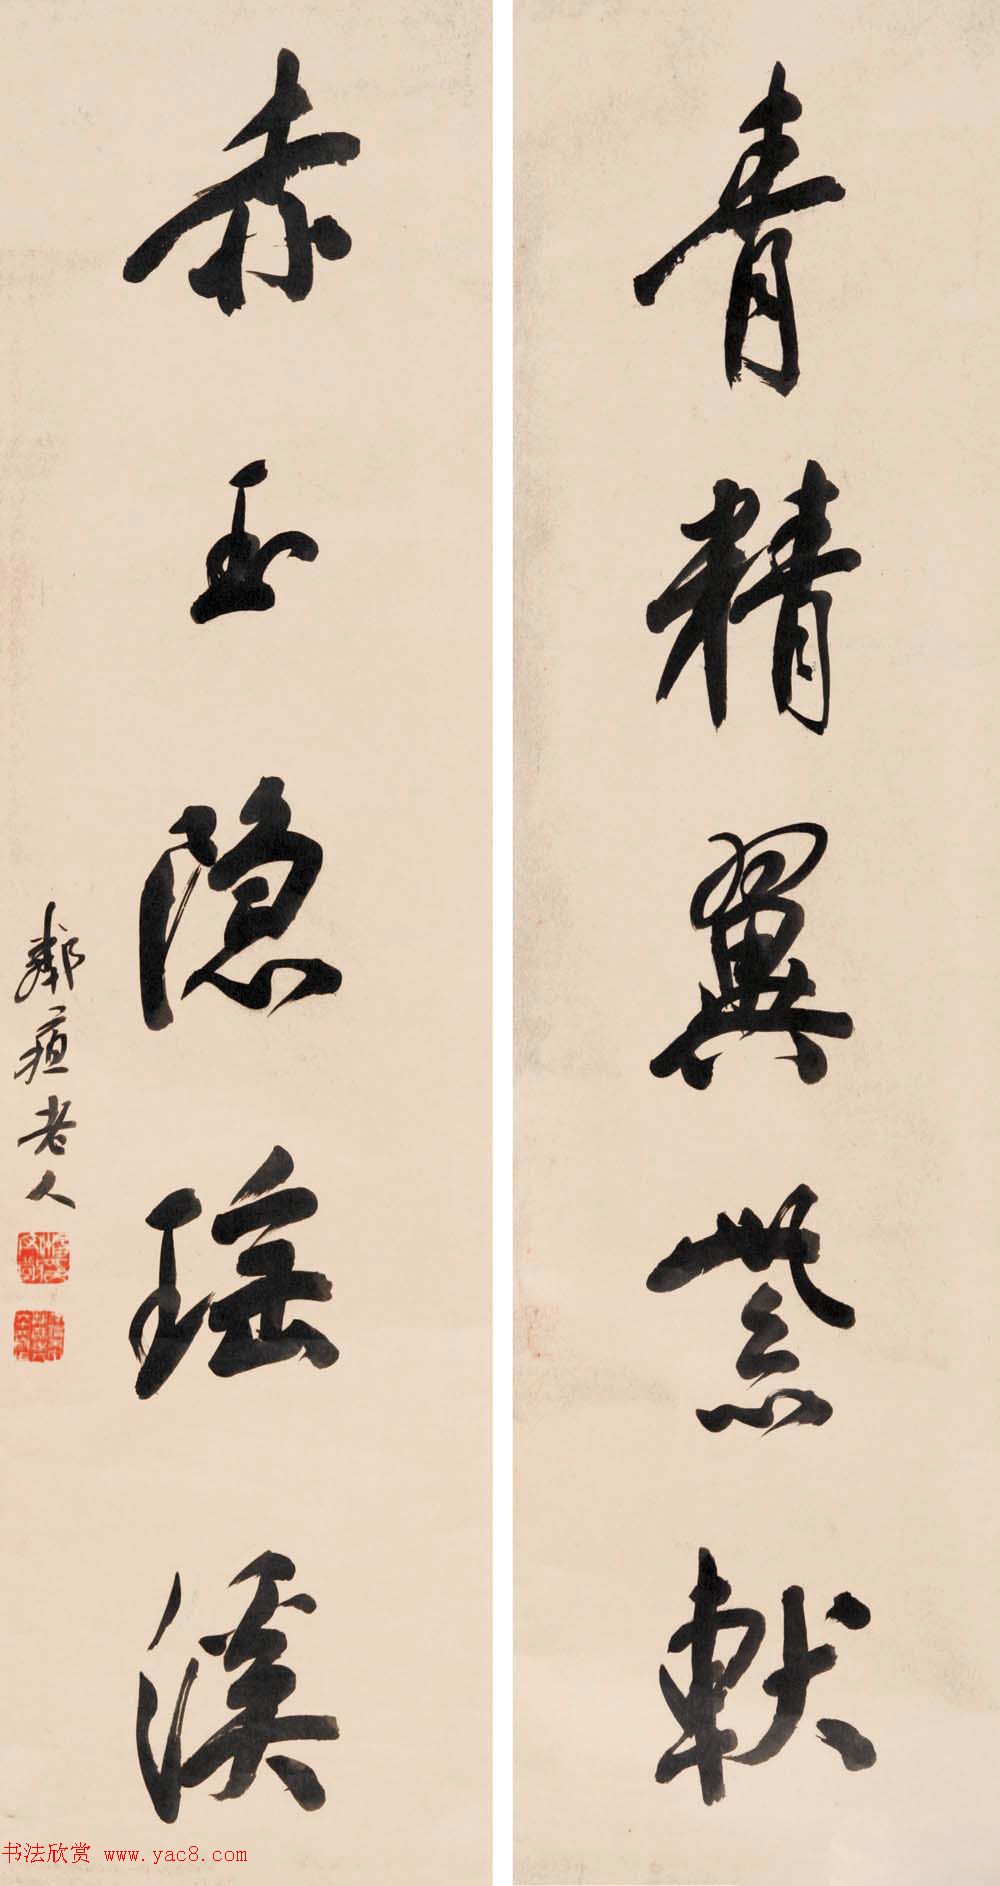 青精翼紫軑
赤玉隐瑶溪
鄰蘓老人
书法欣赏 www.yac8.com